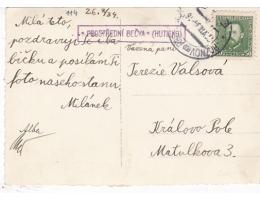 114 26.9/34.
Milá Eto,
pozdravuji Tě i ba-
bičku a posílám Ti
foto našeho stanu,
Milánek
* PROSTŘEDNÍ BEČVA * (HUTISKO)
Vážená paní
Terezie Valsová
Královo Pole
Matulkova 3.